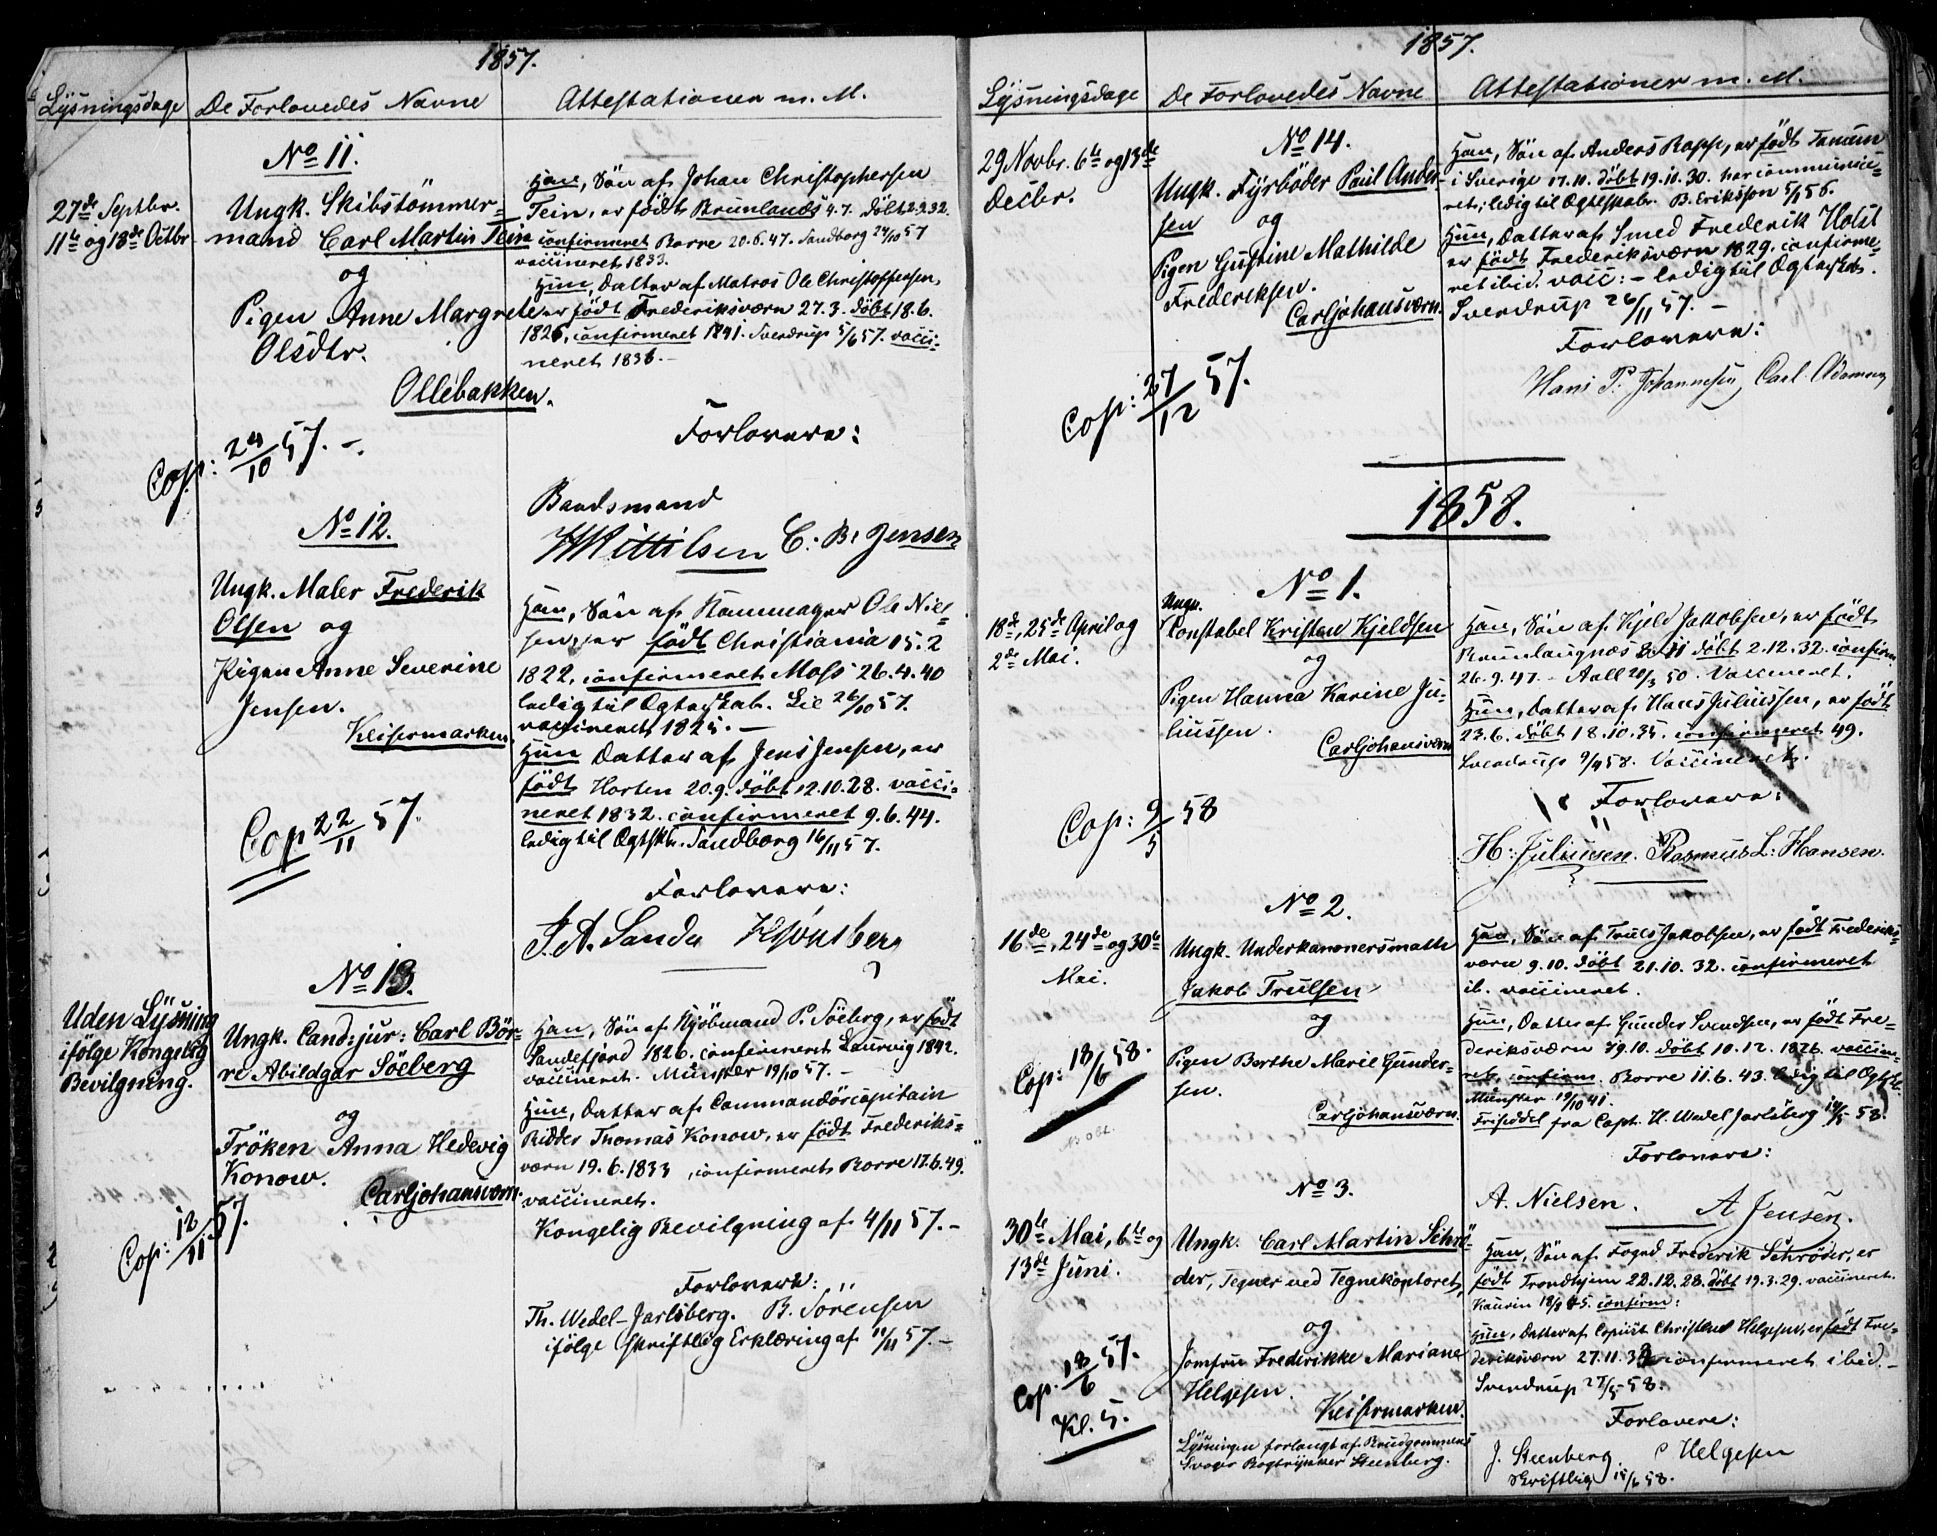 1857.
Lÿsningsdage
De Forlovedes Navne
Attestationer m. M.
No 11.
27de Septbr.
11te og 18de Octbr
Ungk. Skibstömmer-
mand Carl Martin Tein
og
Pigen Anne Margrete
Olsdtr.
Ollebakken.
Cop: 24/10 57. -
Han, Sön af Johan Christophersen
Tein, er födt Brunlands 4.7. döbt 2.9.32.
confirmeret Borre 20.6.47. Sandborg 24/10 57
vaccineret 1833.
Hun, Datter af Matros Ole Christoffersen,
er födt Frederiksværn 27.3. döbt 18.6.
1826, confirmeret 1841. Sverdrup 5/6 57. vacci-
neret 1836. -
Forlovere:
Baadsmand
H Kittilsen C. B. Jensen
No 12.
Ungk. Maler Frederik
Olsen og
Pigen Anne Severine
Jensen.
Keisermarken.
Cop 22/11 57.
Han, Sön af Kammager Ole Niel-
sen, er födt Christiania 15.2
1822, confirmeret Moss 26.4.40
ledig til Ogteskab. Lie 26/10 57.
vaccineret 1825. -
Hun Datter af Jens Jensen, er
födt Horten 20.9. döbt 12.10.28. vacci-
neret 1832. confirmeret 9.6.44.
ledig til Ogtsk. Sandborg 16/11 57.
Forlovere:
J. A. Sande
No 13.
Uden Lÿsning
ifölge Kongelig
Bevilgning.
Ungk. Cand: jur: Carl Bör-
re Abildgar Söeberg
og
Fröken Anna Hedevig
Konow.
Carljohansværn.
Cop: 12/11 57.
Han, Sön af Kjöbmand P. Söeberg, er födt
Sandefjord 1826. confirmeret Laurvig 1842.
vaccineret. Münster 19/10 57. -
Hun, Datter af Commandörcapitain
Ridder Thomas Konow, er födt Frederiks-
værn 19.6.1833, confirmeret Borre 17.6.49.
vaccineret.
Kongelig Bevilgning af 4/11 57. -
Forlovere:
Th. Wedel-Jarlsberg. B. Sörensen
ifölge Skriftlig Erklæring af 11/11 57. -
1857.
Lÿsningsdage
De Forlovedes Navne
Attestationer m. M.
No 14.
29 Novbr. 6te og 13de
Decbr.
Ungk. Fÿrböder Paul Ander-
sen og
Pigen Gustine Mathilde
Frederiksen.
Carljohansværn.
Cop: 27/12 57.
Han, Sön af Anders Rapp, er födt Tanum
i Sverige 17.11. döbt 19.11.30. har communice-
ret; ledig til Ogteskab. B. Eriksson 5/1 56.
Hun, Datter af Smed Frederik Holst
er födt Frederiksværn 1829. confirme-
ret ibid. vacc: - ledig til Ogteskab.
Sverdrup 26/11 57. -
Forlovere:
Hans P. Johannesen, Carl Adamsen
1858.
No 1.
18de, 25de April og
2den Mai.
Ungk.
Constabel Kristen Kjeldsen
og
Pigen Hanna Karine Ju-
liussen.
Carljohansværn
Cop: 9/5 58
Han, Sön af Kjeld Jakobsen, er födt
Brunlaugnæs 8.11 döbt 2.12.32. confirm.
26.9.47. - Aall 21/3 50. Vaccineret.
Hun, Datter af Hans Juliussen, er födt
23.6. döbt 18.10.35. confirmeret 49.
Sverdrup 9/4 58. Vaccineret.
Forlovere:
H: Juliusen. Rasmus L: Hansen.
No 2.
16de, 24de og 30te
Mai.
Ungk. Underkanonersmath
Jakob Trulsen
og
Pigen Berthe Marie Gunder-
sen.
Carljohansværn.
Cop: 18/6 58.
Han, Sön af Truls Jakobsen, er födt Frederiks-
værn 9.10. döbt 21.10.32. confirmeret
ib. vaccineret.
Hun, Datter af Gunder Svendsen, er födt Fre-
deriksværn 19.10. döbt 10.12.1826. vaccine-
ret, confirm. Borre 11.6.43. ledig til Ogtsk.
Münster 19/10 41.
Friseddel fra Capt. H. Wedel Jarlsberg 14/5 58.
Forlovere:
A. Nielsen. A Jensen.
No 3.
30te Mai, 6te og
13de Juni.
Ungk. Carl Martin Schrö-
der, Tegner ved Tegnekontoret,
og
Jomfru Frederikke Mariane
Helgesen.
Keisermarken.
Lÿsningen forlangt af Brudgommens
Svoger Bogtrÿkker Steenberg.
Cop. 18/6 57.
Kl. 5.
Han, Sön af Foged Frederik Schröder, er
födt Trondhjem 22.12.28. döbt 19.3.29. vaccineret.
Kaurin 18/9 45. confirm:
Hun, Datter af Copiist Christend Helgesen, er födt Fre-
deriksværn 27.11.38 confirmeret ibid. -
Sverdrup 25/5 58.
Forlovere:
J. Steenberg. C Helgesen
skriftlig 15/6 58.